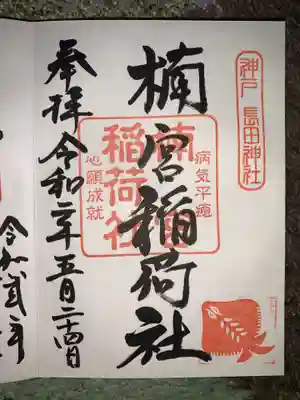 神戸 長田神社
楠宮稲荷社
病気平癒
楠宮
稲荷社
心願成就
奉拝 令和二年五月二十四日
令和弐年